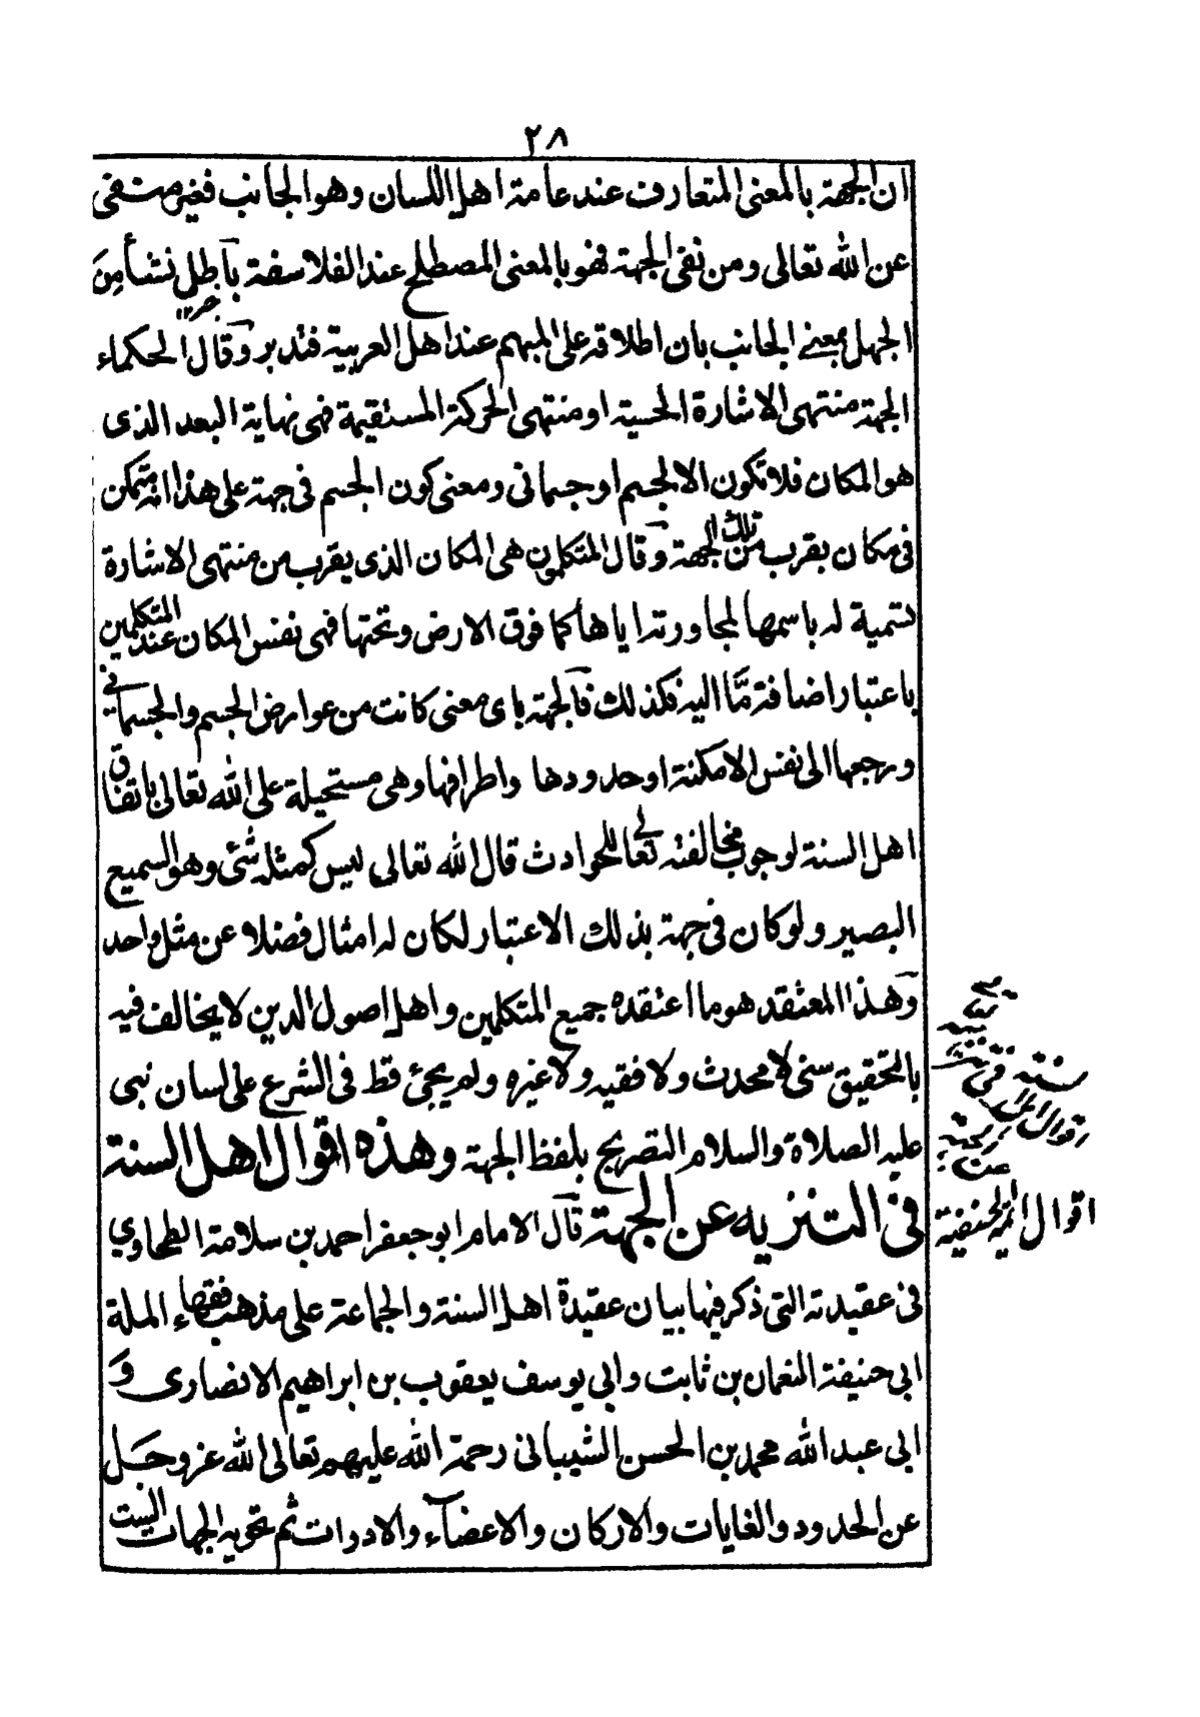 ٢٨
ان الجهة بالمعنى المتعارف عند عامة اهل اللسان وهو الجانب فغير منتفى
عن الله تعالى ومن نفى الجهة فهو بالمعنى المصطلح عند الفلاسفة باطل نشأ من
الجهل بمعنى الجانب بان اطلاقه على المبهم عند اهل العربية فتدبر وقال الحكماء
الجهة منتهى الاشارة الحسية او منتهى الحركة المستقيمة فهى نهاية البعد الذى
هو المكان فلا تكون الا لجسم او جسمانى ومعنى كون الجسم فى جهة على هذا انه متمكن
فى مكان يقرب من تلك الجهة وقال المتكلمون هى المكان الذى يقرب من منتهى الاشارة
تسمية له باسمها لمجاورته اياها كما فوق الارض وتحتها فهى نفس المكان عند المتكلمين
باعتبار اضافة مّا اليه فكذلك فالجهة باى معنى كانت من عوارض الجسم والجسمانى
ومرجعها الى نفس الامكنة او حدودها واطرافها وهى مستحيلة على الله تعالى باتفاق
اهل السنة لوجوب مخالفته تعالى للحوادث قال الله تعالى ليس كمثله شئ وهو السميع
البصير ولو كان فى جهة بذلك الاعتبار لكان له امثال فضلا عن مثل واحد
وهذا المعتقد هو ما اعتقده جميع المتكلمين واهل اصول الدين لا يخالف فيه
بالتحقيق سنى لا محدث ولا فقيه ولا غيره ولم يجئ قط فى الشرع على لسان نبى
عليه الصلاة والسلام التصريح بلفظ الجهة وهذه اقوال اهل السنة
فى التنزيه عن الجهة قال الامام ابو جعفر احمد بن سلامة الطحاوي
فى عقيدته التى ذكر فيها بيان عقيدة اهل السنة والجماعة على مذهب فقهاء الملة
ابى حنيفة النعمان بن ثابت وابى يوسف يعقوب بن ابراهيم الانصارى و
ابى عبد الله محمد بن الحسن الشيبانى رحمة الله عليهم تعالى الله عز وجل
عن الحدود والغايات والاركان والاعضاء والادوات ثم تحويه الجهات الست
اقوال اهل
سنة فى
عن
اقوال ائمة الحنفية